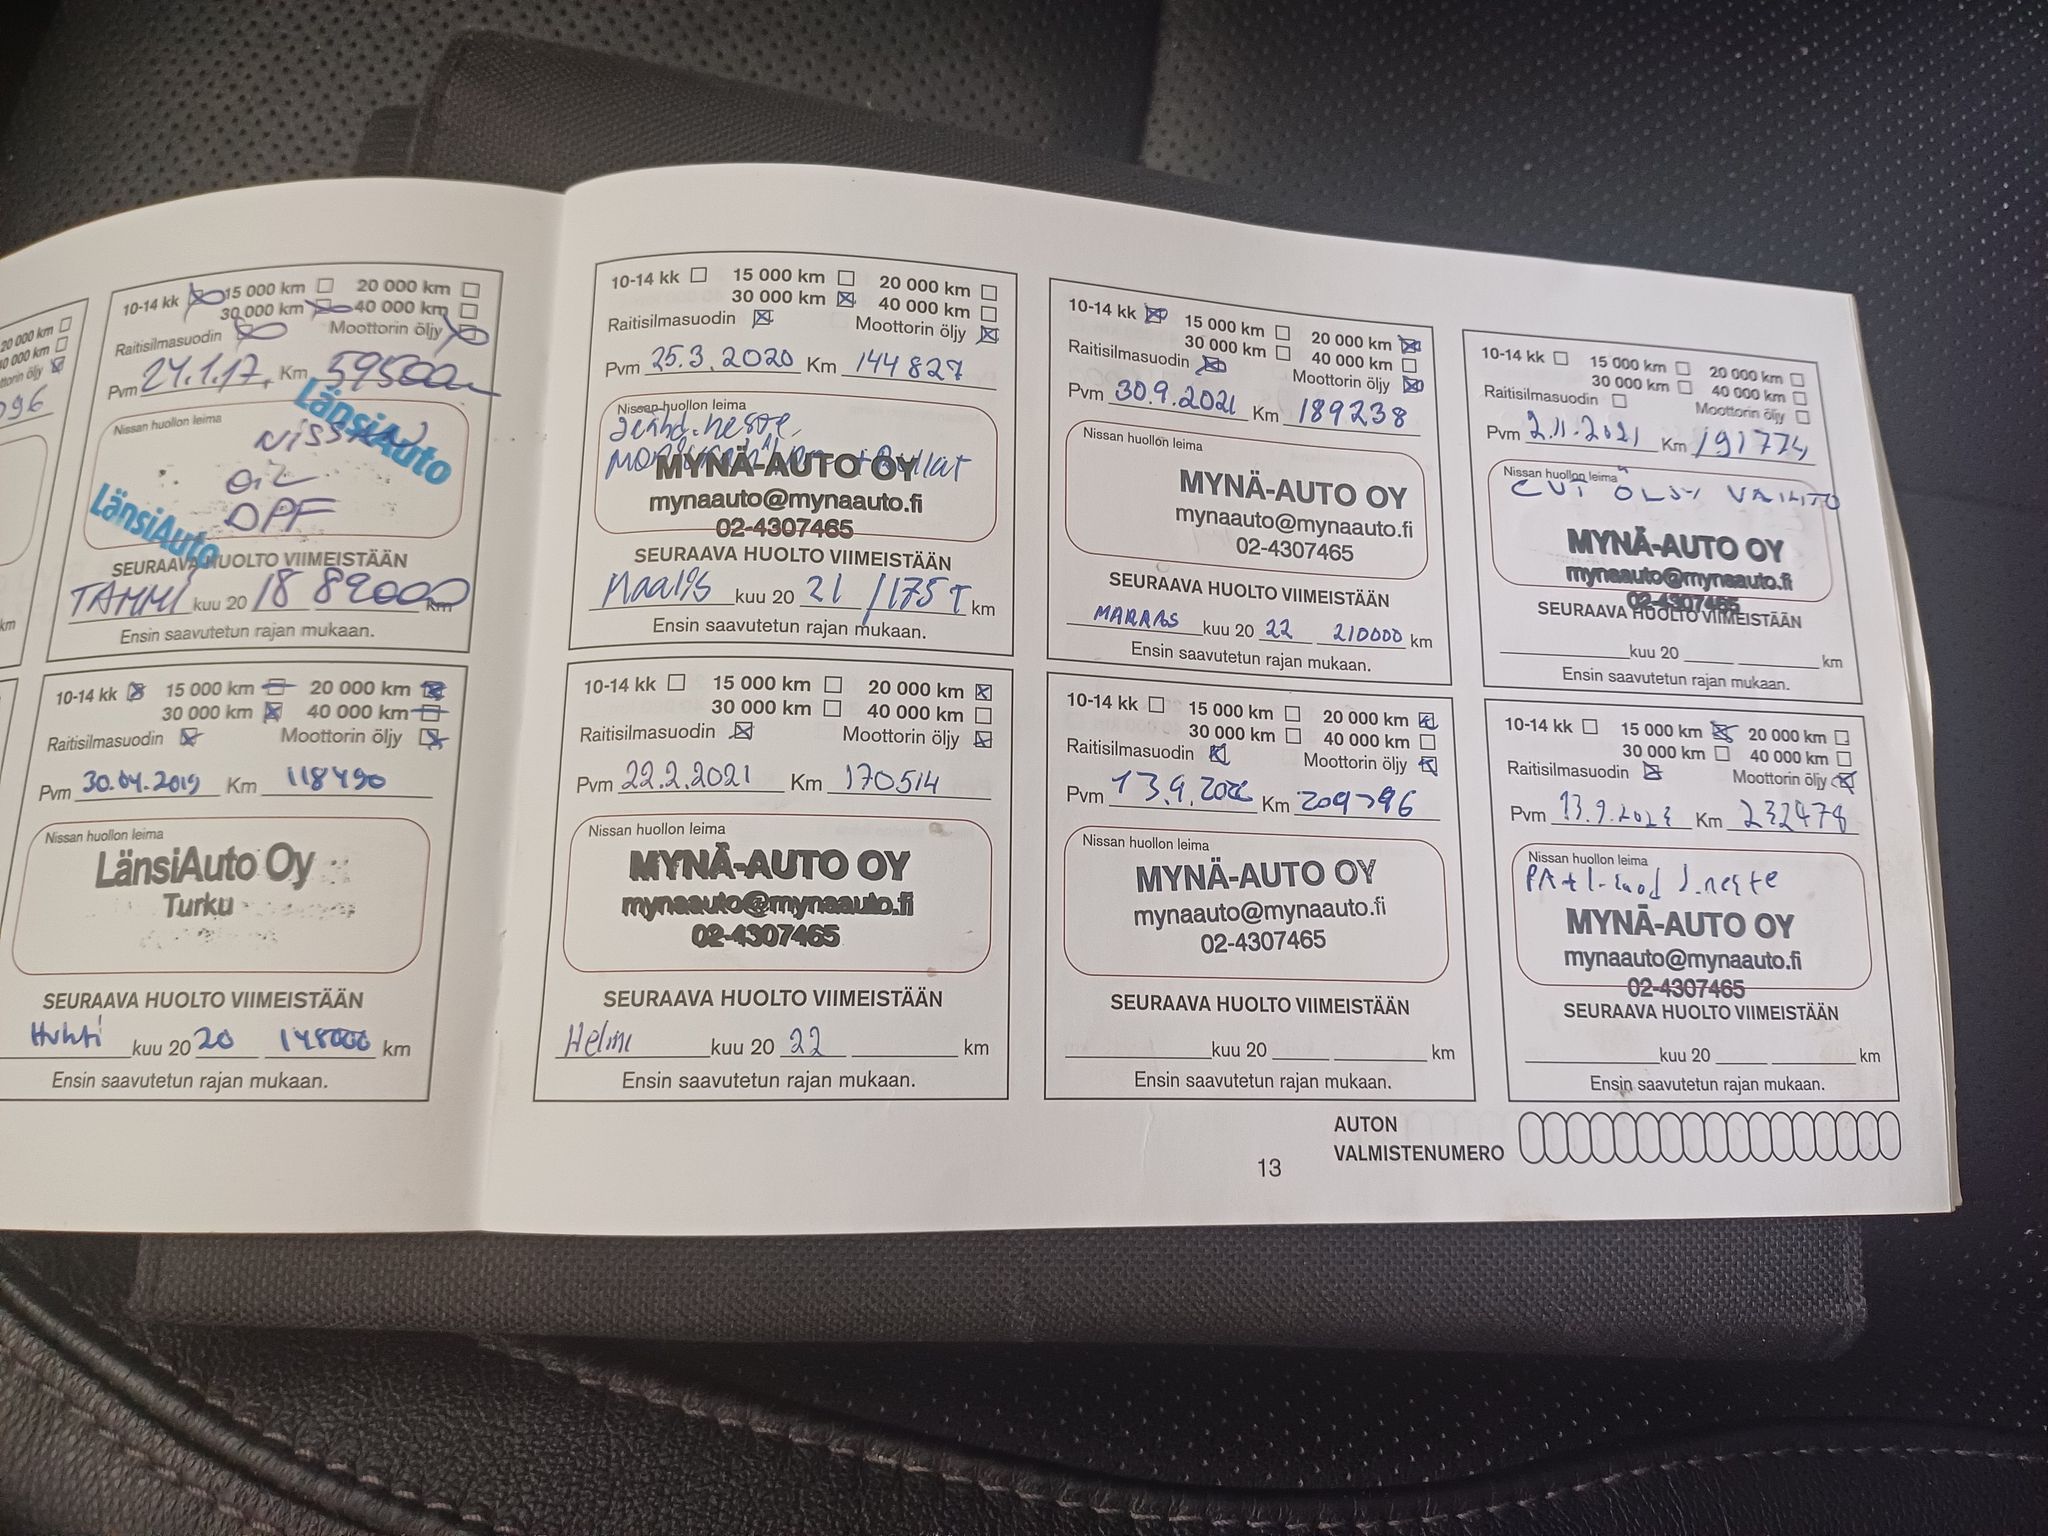 20 000 km
40 000 km
km
10-14 kk 15 000 km 20 000 km
30 000 km 40 000 km
Raitisilmasuodin Moottorin öljy
Pvm 24.1.17. Km 59500
Nissan huollon leima
LänsiAuto
NISSAN
OIL
DPF
LänsiAuto
SEURAAVA HUOLTO VIIMEISTÄÄN
TAMMI kuu 20 18 89000 km
Ensin saavutetun rajan mukaan.
10-14 kk 15 000 km 20 000 km
30 000 km 40 000 km
Raitisilmasuodin Moottorin öljy
Pvm 30.04.2019 Km 118490
Nissan huollon leima
LänsiAuto Oy
Turku
SEURAAVA HUOLTO VIIMEISTÄÄN
Huhti kuu 20 20 148000 km
Ensin saavutetun rajan mukaan.
10-14 kk 15 000 km 20 000 km
30 000 km 40 000 km
Raitisilmasuodin Moottorin öljy
Pvm 25.3.2020 Km 144827
Nissan huollon leima
MYNÄ-AUTO OY
mynaauto@mynaauto.fi
02-4307465
SEURAAVA HUOLTO VIIMEISTÄÄN
Maalis kuu 20 21 /175 T km
Ensin saavutetun rajan mukaan.
10-14 kk 15 000 km 20 000 km
30 000 km 40 000 km
Raitisilmasuodin Moottorin öljy
Pvm 22.2.2021 Km 170514
Nissan huollon leima
MYNÄ-AUTO OY
mynaauto@mynaauto.fi
02-4307465
SEURAAVA HUOLTO VIIMEISTÄÄN
Helmi kuu 20 22 km
Ensin saavutetun rajan mukaan.
10-14 kk 15 000 km 20 000 km
30 000 km 40 000 km
Raitisilmasuodin Moottorin öljy
Pvm 30.9.2021 Km 189238
Nissan huollon leima
MYNÄ-AUTO OY
mynaauto@mynaauto.fi
02-4307465
SEURAAVA HUOLTO VIIMEISTÄÄN
MARRAS kuu 20 22 210000 km
Ensin saavutetun rajan mukaan.
10-14 kk 15 000 km 20 000 km
30 000 km 40 000 km
Raitisilmasuodin Moottorin öljy
Pvm 13.9.2022 Km 209796
Nissan huollon leima
MYNÄ-AUTO OY
mynaauto@mynaauto.fi
02-4307465
SEURAAVA HUOLTO VIIMEISTÄÄN
kuu 20 km
Ensin saavutetun rajan mukaan.
10-14 kk 15 000 km 20 000 km
30 000 km 40 000 km
Raitisilmasuodin Moottorin öljy
Pvm 2.11.2021 Km 191774
Nissan huollon leima
CVT ÖLJY VAIHTO
MYNÄ-AUTO OY
mynaauto@mynaauto.fi
02-4307465
SEURAAVA HUOLTO VIIMEISTÄÄN
kuu 20 km
Ensin saavutetun rajan mukaan.
10-14 kk 15 000 km 20 000 km
30 000 km 40 000 km
Raitisilmasuodin Moottorin öljy
Pvm 13.9.2023 Km 232478
Nissan huollon leima
MYNÄ-AUTO OY
mynaauto@mynaauto.fi
02-4307465
SEURAAVA HUOLTO VIIMEISTÄÄN
kuu 20 km
Ensin saavutetun rajan mukaan.
AUTON
VALMISTENUMERO
13